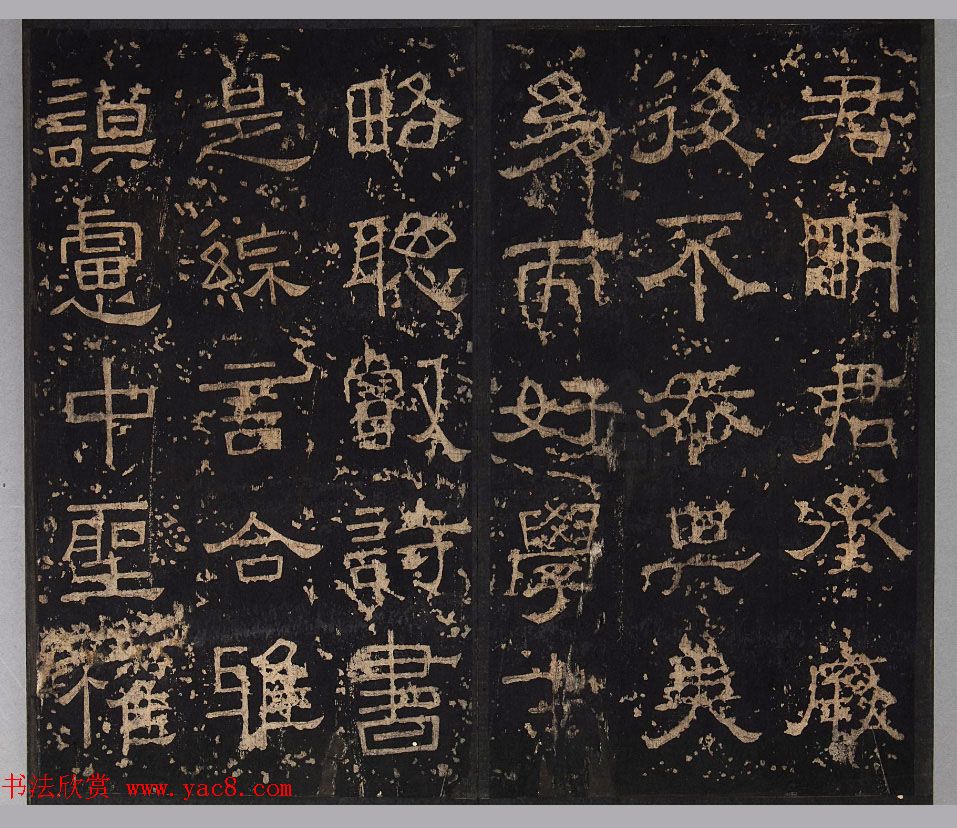 君明君承厥
後不忝其美
幼而好學才
略聰叡詩書
是綜言合雅
謨慮中聖權
书法欣赏 www.yac8.com